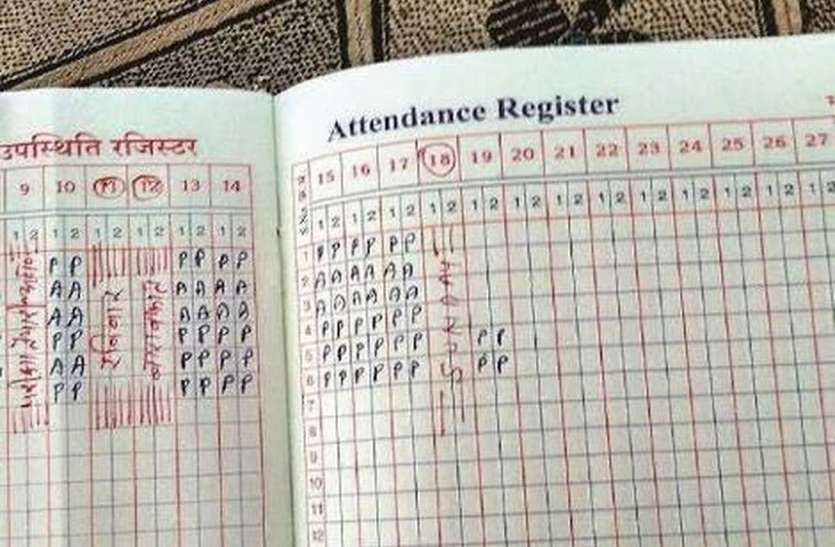 उपस्थिति रजिस्टर
9 10 11 12 13 14
1 2 1 2 1 2 1 2 1 2 1 2
P P P P P P
A A A A A A
A A A A A A
P P P P P P
A A P P P P
P P P P P P
रविवार
Attendance Register
15 16 17 18 19 20 21 22 23 24 25 26 27
1 2 1 2 1 2 1 2 1 2 1 2 1 2 1 2 1 2 1 2 1 2 1 2 1 2
1 P P P P P P
2 A A A A A A
3 A A A A A A
4 P P P P P P
5 P P P P P P P P
6 P P P P P P P P
7
8
9
10
11
12